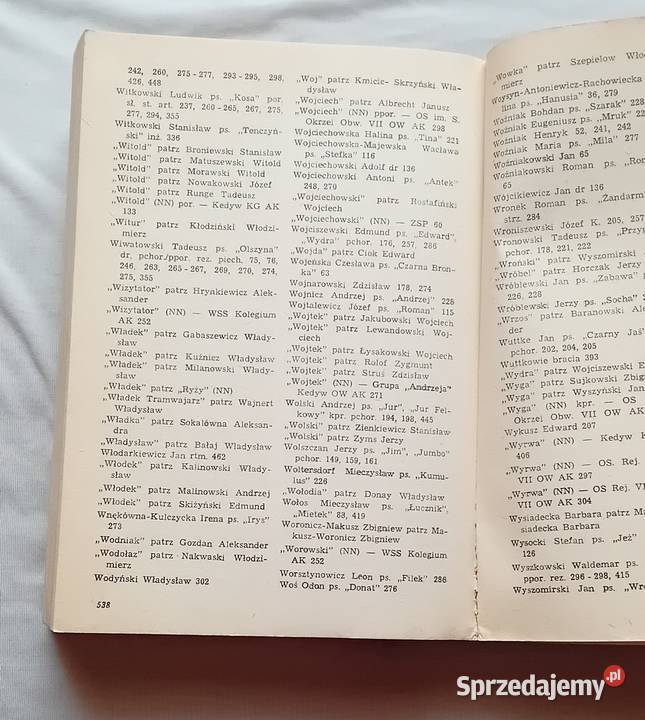 242, 260, 275-277, 293-295, 298,
426, 448
Witkowski Ludwik ps. „Kosa" por.
sł. st. art. 237, 260-265, 267, 275,
277, 294, 355
Witkowski Stanisław ps. „Tenczyń-
ski" inż. 336
„Witold" patrz Broniewski Stanisław
„Witold" patrz Matuszewski Witold
„Witold" patrz Morawski Witold
„Witold" patrz Nowakowski Józef
„Witold" patrz Runge Tadeusz
„Witold" (NN) por. — Kedyw KG AK
133
„Witur" patrz Kłodziński Włodzi-
mierz
Wiwatowski Tadeusz ps. „Olszyna"
dr, pchor./ppor. rez. piech. 75, 76,
246, 263, 265-267, 269, 270, 274,
275, 355
„Wizytator" patrz Hrynkiewicz Alek-
sander
„Wizytator" (NN) — WSS Kolegium
AK 252
„Władek" patrz Gabaszewicz Włady-
sław
„Władek" patrz Kuźnicz Władysław
„Władek" patrz Milanowski Włady-
sław
„Władek" patrz „Ryży" (NN)
„Władek Tramwajarz" patrz Wajnert
Władysław
„Władka" patrz Sokalówna Aleksan-
dra
„Władysław" patrz Bałaj Władysław
Włodarkiewicz Jan rtm. 462
„Włodek" patrz Kalinowski Włady-
sław
„Włodek" patrz Malinowski Andrzej
„Włodek" patrz Skiżyński Edmund
Wnękówna-Kulczycka Irena ps. „Irys"
273
„Wodniak" patrz Gozdan Aleksander
„Wodołaz" patrz Nakwaski Włodzi-
mierz
Wodyński Władysław 302
538
„Woj" patrz Kmicic-Skrzyński Wła-
dysław
„Wojciech" patrz Albrecht Janusz
„Wojciech" (NN) ppor. — OS im. S.
Okrzei Obw. VII OW AK 298
Wojciechowska Halina ps. „Tina" 221
Wojciechowska-Majewska Wacława
ps. „Stefka" 116
Wojciechowski Adolf dr 136
Wojciechowski Antoni ps. „Antek"
248, 270
„Wojciechowski" patrz Rostafiński
Wojciech
„Wojciechowski" (NN) — ZSP 60
Wojciszewski Edmund ps. „Edward",
„Wydra" pchor. 176, 257, 286
„Wojda" patrz Ciok Edward
Wojeńska Czesława ps. „Czarna Bron-
ka" 63
Wojnarowski Zdzisław 178, 274
Wojnicz Andrzej ps. „Andrzej" 225
Wojtalewicz Józef ps. „Roman" 115
„Wojtek" patrz Jakubowski Wojciech
„Wojtek" patrz Lewandowski Woj-
ciech
„Wojtek" patrz Łysakowski Wojciech
„Wojtek" patrz Rolof Zygmunt
„Wojtek" patrz Struś Zdzisław
„Wojtek" (NN) — Grupa „Andrzeja"
Kedyw OW AK 271
Wolski Andrzej ps. „Jur", „Jur Fel-
kowy" kpr. pchor. 194, 198, 445
„Wolski" patrz Zienkiewicz Stanisław
„Wolski" patrz Zyms Jerzy
Wolszczan Jerzy ps. „Jim", „Jumbo"
pchor. 149, 159, 161
Woltersdorf Mieczysław ps. „Kumu-
lus" 226
„Wołodia" patrz Donay Władysław
Wołos Mieczysław ps. „Łucznik",
„Mietek" 83, 419
Woronicz-Makusz Zbigniew patrz Ma-
kusz-Woronicz Zbigniew
„Worowski" (NN) — WSS Kolegium
AK 252
Worsztynowicz Leon ps. „Filek" 286
Woś Odon ps. „Donat" 276
„Wowka" patrz Szepielow Wło
mierz
Woysyn-Antoniewicz-Rachowiecka
lina ps. „Hanusia" 36, 279
Woźniak Bohdan ps. „Szarak" 228
Woźniak Eugeniusz ps. „Mruk" 22
Woźniak Henryk 52, 241, 242
Woźniak Maria ps. „Mila" 277
Woźniakowski Jan 65
Woźniakowski Roman ps. „Ro
65
Wójcikiewicz Jan dr 136
Wronek Roman ps. „Żandarm
strz. 284
Wroniszewski Józef K. 205, 257
Wronowski Tadeusz ps. „Przy
pchor. 178, 221, 222
„Wroński" patrz Wyszomirski
„Wróbel" patrz Horczak Jerzy
Wróblewski Jan ps. „Zabawa"
226, 228
Wróblewski Jerzy ps. „Socha" 2
„Wrzos" patrz Baranowski Ale
der
Wuttke Jan ps. „Czarny Jaś"
pchor. 202, 204, 205
Wuttkowie bracia 393
„Wydra" patrz Wojciszewski E
„Wyga" patrz Sujkowski Zbig
„Wyga" patrz Wyszyński Jan
„Wyga" (NN) kpr. — OS
Okrzei Obw. VII OW AK
Wykusz Edward 207
„Wyrwa" (NN) — Kedyw K
406
„Wyrwa" (NN) — OS. Rej.
VII OW AK 297
„Wyrwa" (NN) — OS Rej. V
VII OW AK 304
Wysiadecka Barbara patrz Ma
siadecka Barbara
Wysocki Stefan ps. „Jeż"
126
Wyszkowski Waldemar ps.
ppor. rez. 296-298, 415
Wyszomirski Jan ps. „Wro
Sprzedajemy.pl